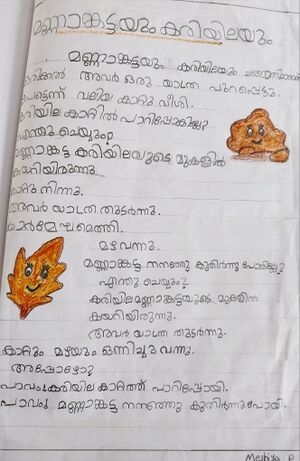 മണ്ണാങ്കട്ടയും കരിയിലയും
മണ്ണാങ്കട്ടയും കരിയിലയും ചങ്ങാതിമാരായി
ഒരിക്കൽ അവർ ഒരു യാത്ര പുറപ്പെട്ടു.
പെട്ടെന്ന് വലിയ കാറ്റു വീശി.
കരിയില കാറ്റിൽ പാറിപ്പോകില്ലേ?
എന്തു ചെയ്യും?
മണ്ണാങ്കട്ട കരിയിലയുടെ മുകളിൽ
കയറിയിരുന്നു.
കാറ്റു നിന്നു.
അവർ യാത്ര തുടർന്നു.
കാർമേഘമെത്തി.
മഴ വന്നു.
മണ്ണാങ്കട്ട നനഞ്ഞു കുതിർന്നു പോകില്ലേ?
എന്തു ചെയ്യും?
കരിയില മണ്ണാങ്കട്ടയുടെ മുകളിൽ
കയറിയിരുന്നു.
അവർ യാത്ര തുടർന്നു.
കാറ്റും മഴയും ഒന്നിച്ചു വന്നു.
അപ്പോഴോ
പാവം! കരിയില കാറ്റത്ത് പാറിപ്പോയി.
പാവം! മണ്ണാങ്കട്ട നനഞ്ഞു കുതിർന്നുപോയി.